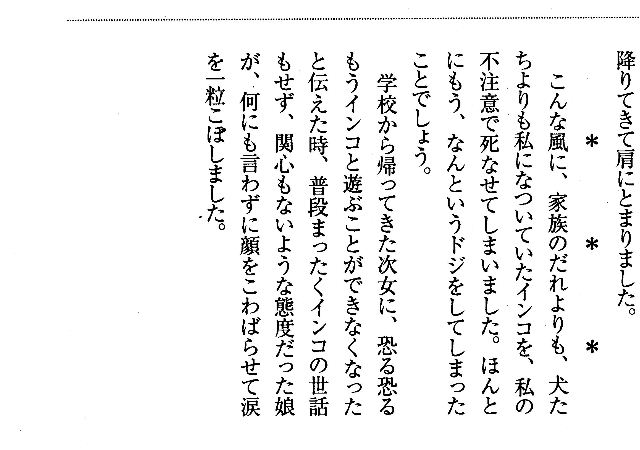 降りてきて肩にとまりました。
＊　＊　＊
こんな風に、家族のだれよりも、犬た
ちよりも私になついていたインコを、私の
不注意で死なせてしまいました。ほんと
にもう、なんというドジをしてしまった
ことでしょう。
学校から帰ってきた次女に、恐る恐る
もうインコと遊ぶことができなくなった
と伝えた時、普段まったくインコの世話
もせず、関心もないような態度だった娘
が、何にも言わずに顔をこわばらせて涙
を一粒こぼしました。